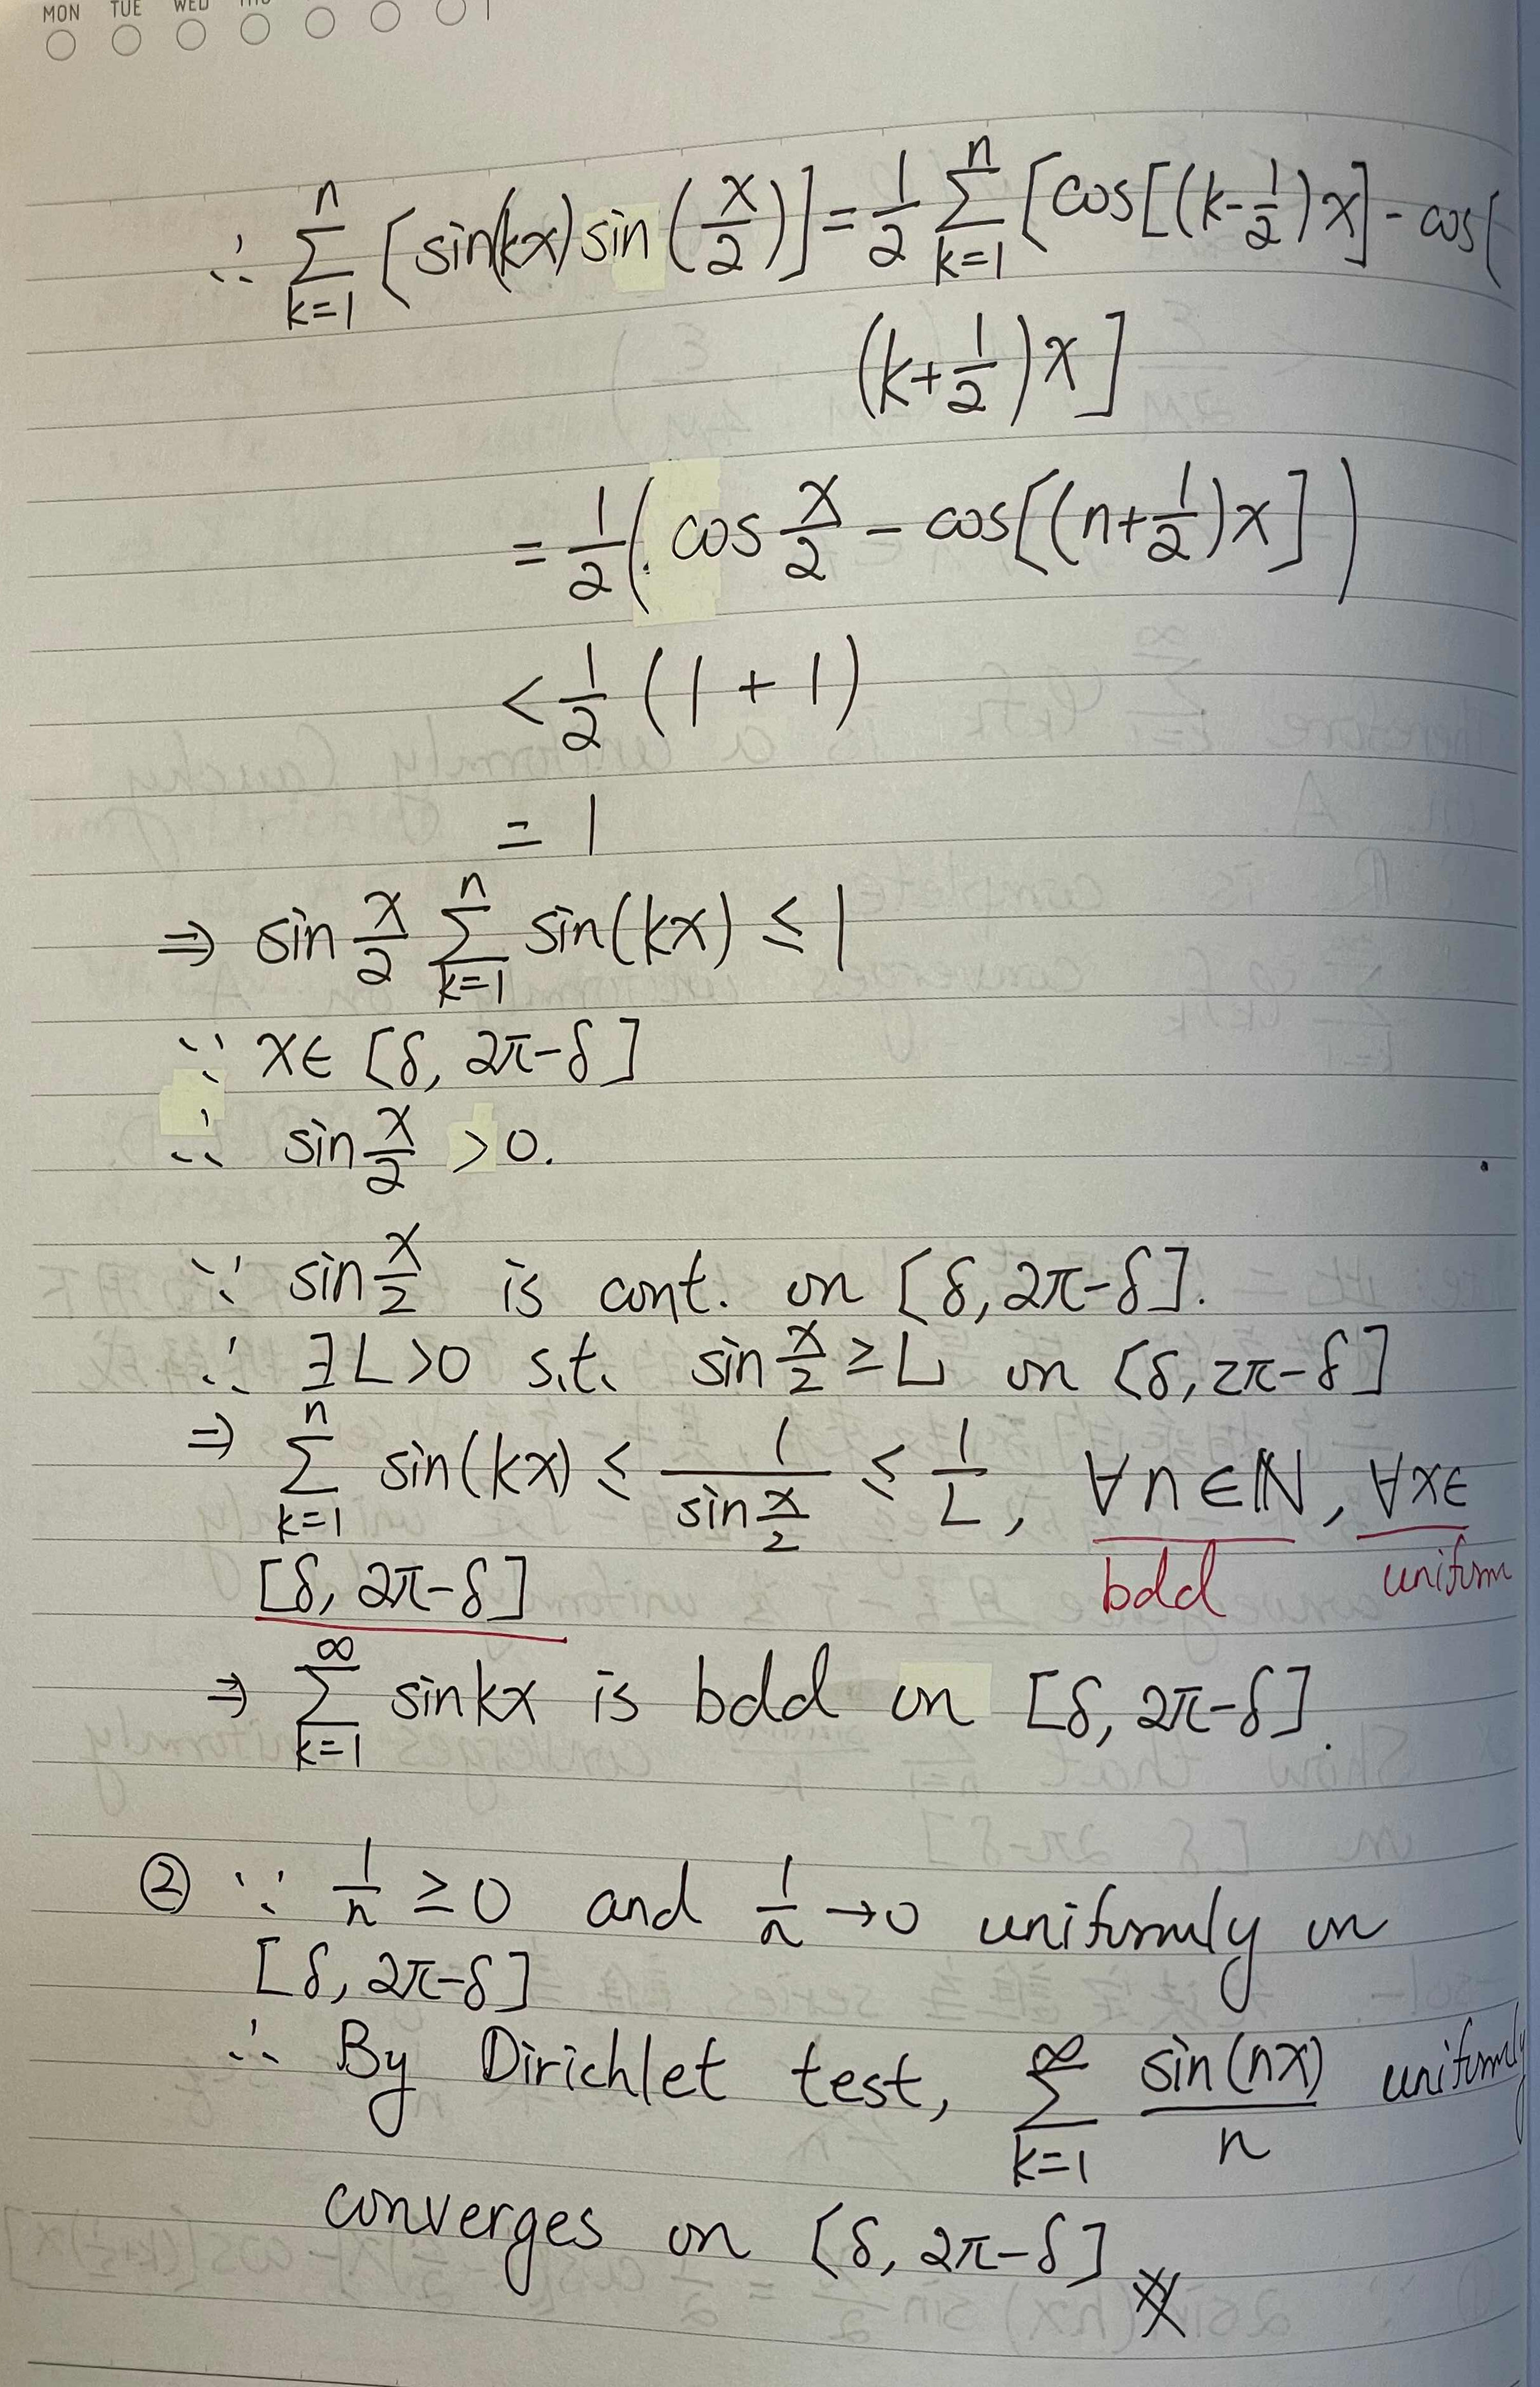 MON TUE WED THU
∴ Σ_{k=1}^{n} [sin(kx) sin(x/2)] = 1/2 Σ_{k=1}^{n} [cos[(k-1/2)x] - cos(
(k+1/2)x]
= 1/2 (cos x/2 - cos[(n+1/2)x])
< 1/2 (1+1)
= 1
⇒ sin x/2 Σ_{k=1}^{n} sin(kx) ≤ 1
∵ x∈ [δ, 2π-δ]
∴ sin x/2 >0.
∵ sin x/2 is cont. on [δ, 2π-δ].
∴ ∃L>0 s.t. sin x/2 ≥ L on [δ, 2π-δ]
⇒ Σ_{k=1}^{n} sin(kx) ≤ 1/(sin x/2) ≤ 1/L, ∀n∈ℕ, ∀x∈
bdd uniform
[δ, 2π-δ]
⇒ Σ_{k=1}^{∞} sinkx is bdd on [δ, 2π-δ].
② ∵ 1/n ≥ 0 and 1/n →0 uniformly on
[δ, 2π-δ]
∴ By Dirichlet test, Σ_{k=1}^{∞} sin(nx)/n uniformly
converges on [δ, 2π-δ]